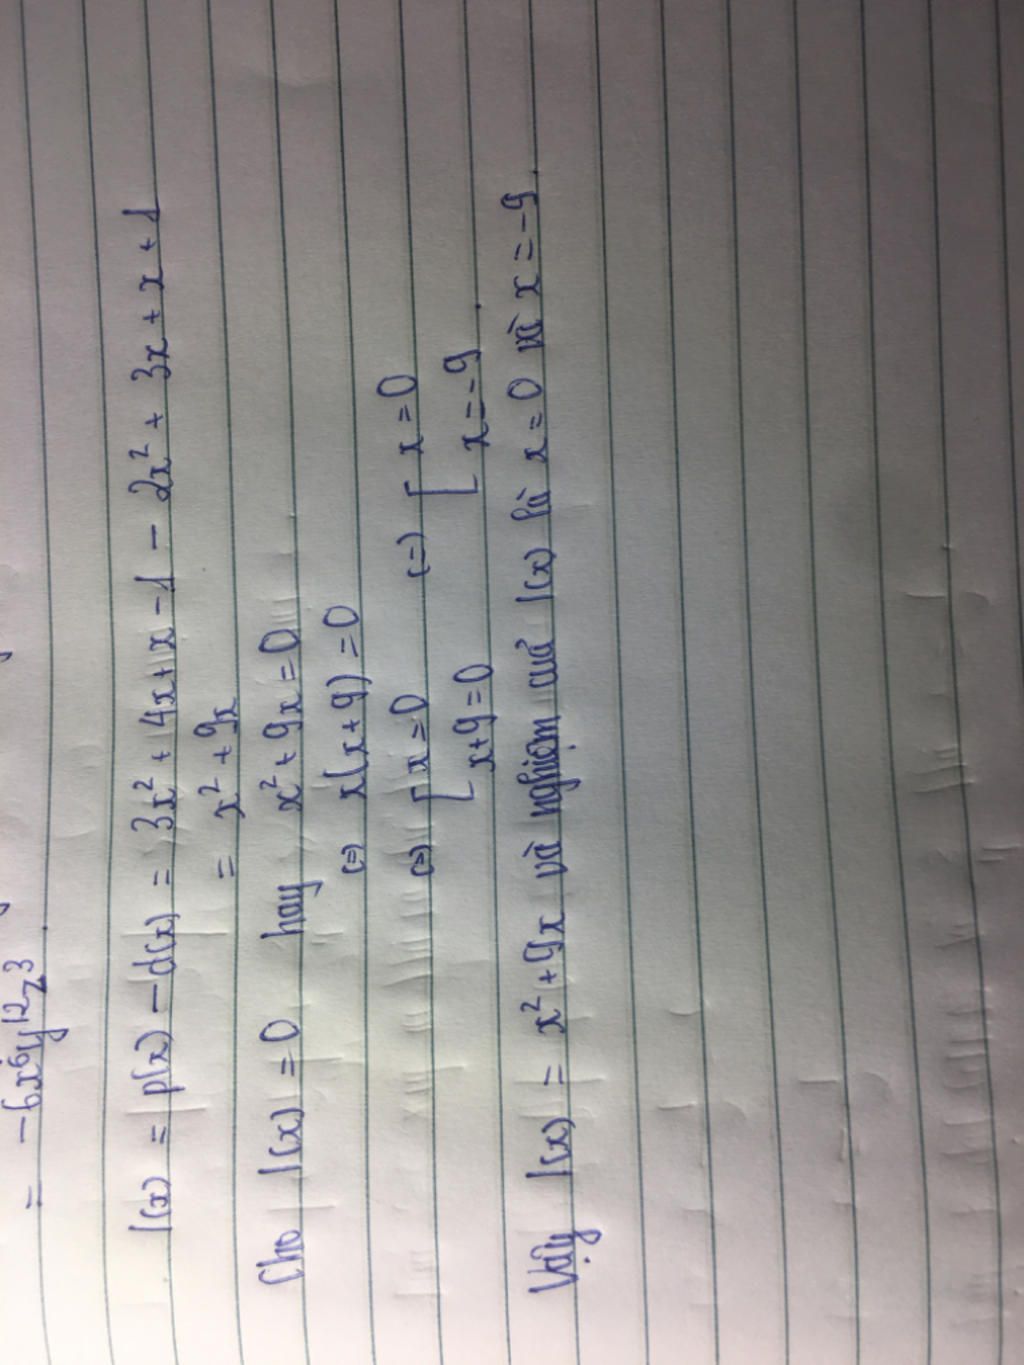 = -6x⁶y¹²z³
l(x) = p(x) - d(x) = 3x² + 4x + x - 1 - 2x² + 3x + x + 1
= x² + 9x
Cho l(x) = 0 hay x² + 9x = 0
(=) x(x + 9) = 0
(=) [ x = 0 (=) [ x = 0
x + 9 = 0 x = -9 .
Vậy l(x) = x² + 9x và nghiệm của l(x) là x = 0 và x = -9 .